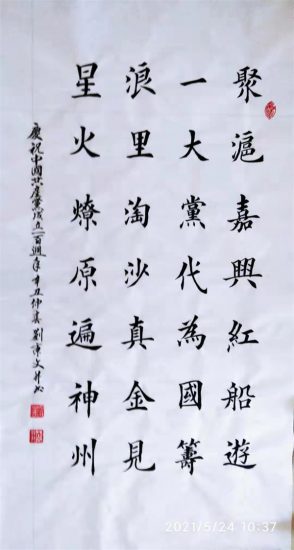 聚滬嘉興紅船遊
一大黨代為國籌
浪里淘沙真金見
星火燎原遍神州
慶祝中國共產黨成立一百週年辛丑仲春劉
2021/5/24 10:37